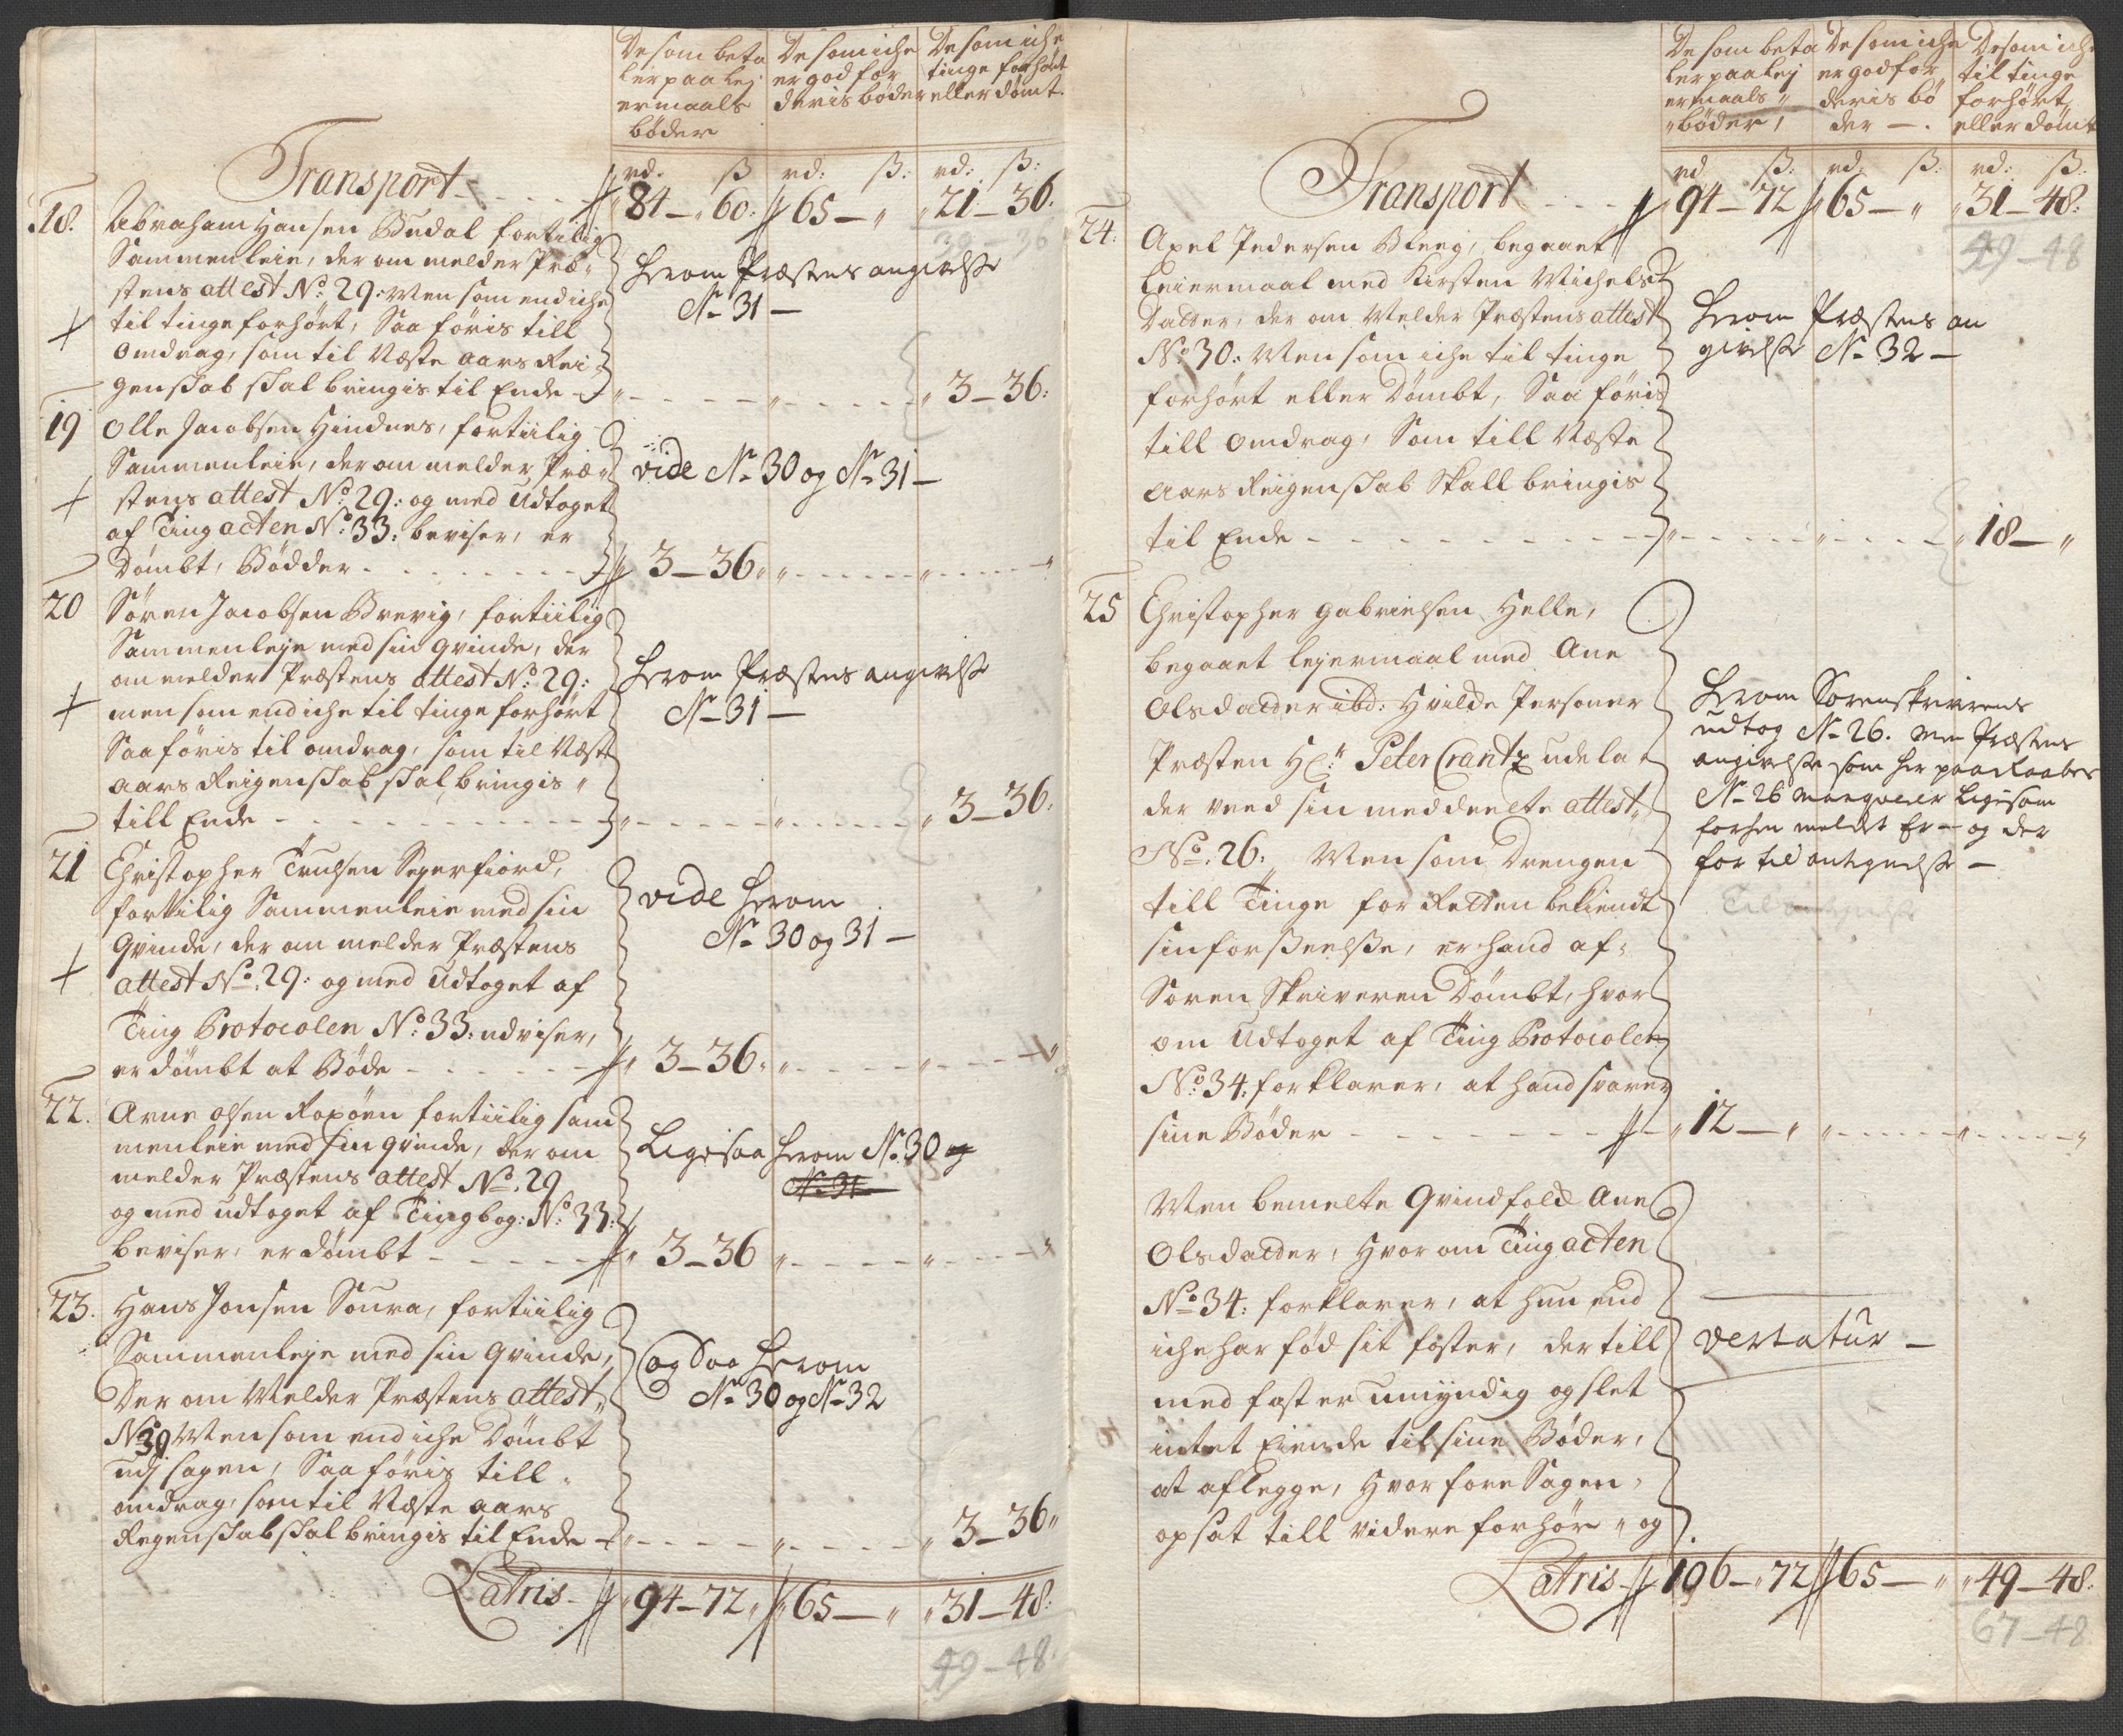 De som beta
ler paa Lej
ermaals
bøder
De som iche
er god for
deris bøder
De som iche
tinge forhørt
eller dømt.
rd. ß rd: ß: rd: ß:
Transport 84 – 60. 65 – 21 – 36.
39 – 36
18. Abraham Hansen Budal fortilig
Sammenleie, der om melder Præ-
stens attest No: 29: Men som end iche
til tinge forhørt, Saa føris till
omdrag, som til Næste aars Rei-
genskab skal bringis til Ende
Herom Præstens angivelse
No 31 –
3 – 36:
19 Olle Jacobsen Hindnes, fortiilig
Sammenleie, der om melder Præ-
stens attest No: 29: og med Udtoget
af Ting acten No: 33: beviser, er
Dømbt, Bødder
vide No 30 og No 31 –
3 – 36
20 Søren Jacobsen Brevig, fortiilig
Sammenleje med sin qvinde, der
om melder Præstens attest No: 29:
men som end iche til tinge forhørt
Saa føris til omdrag, som til Næste
aars Reigenskab skal bringis
till Ende
Herom Præstens angivelse
No 31 –
3 – 36:
21 Christopher Trulsen Segerfiord,
fortilig Sammenleie med sin
Qvinde, der om melder Præstens
attest No. 29: og med Udtoget af
Ting Protocolen No: 33: udviser,
er dømbt at Bøde
vide herom
No 30 og 31 –
3 – 36
22. Arne Olsen Roxøen fortiilig sam
menleie med sin qvinde, der om
melder Præstens attest No. 29
og med udtoget af Tingbog: No: 33:
beviser, er dømbt
Ligesaa herom No. 30 og
No 31
3 – 36
23. Hans Jonsen Soura, fortiilig
Sammenleje med sin qvinde,
Der om Melder Præstens attest
No 30 Men som end iche Dømbt
udj sagen, Saa føris till
omdrag, som til Næste aars
Regenskab skal bringis til Ende
og Saa herom
No 30 og No 32
3 – 36
Latris 94 – 72 65 – 31 – 48:
49 – 48.
De som beta
ler paa Lej
ermaals
bøder,
De som iche
er god for
deris bø
der –.
De som iche
til tinge
forhørt,
eller dømt
rd ß: rd: ß: rd: ß:
Transport 94 – 72 65 – 31 – 48:
49 – 48
24: Axel Pedersen Bleeg, begaaet
Leiermaal med Kirsten Michels
Datter, der om Melder Præstens attest
No 30: Men som iche til tinge
forhørt eller Dømbt, Saa føris
till omdrag, Som till Næste
aars Reigenskab Skall bringis
til Ende
Herom Præstens an
givelse No 32 –
18 –
25 Christopher Gabrielsen Helle,
begaaet lejermaal med Ane
Olsdatter ibd: Hvilde Personer
Præsten Hr: Peter Crantz udela-
der veed sin meddeelte attest
No. 26. Men som Drengen
till Tinge for Retten bekiendt
sin forseelse, er hand af
Soren Skriveren Dømbt, hvor
om Udtoget af Ting Protocolen
No: 34: forklarer, at hand svarer
sine Bøder
Herom Sorenskrivrens
udtog No 26. men Præstens
angivelse som her paa Raabes
No 26 manqverer Ligesom
forhen meldet Er – og der
for til antegnelse –
Til antegnelse
12 –
Men bemelte Qvindfolck Ane
Olsdatter, Hvor om Ting acten
No 34: forklarer, at hun end
iche har fød sit foster, der till
med fast er umyndig og slet
intet Eiende til sine Bøder,
at aflegge, Hvor fore Sagen
opsat till videre forhør og
vertatur –
Latris 106 – 72 65 – 49 – 48.
67 – 48